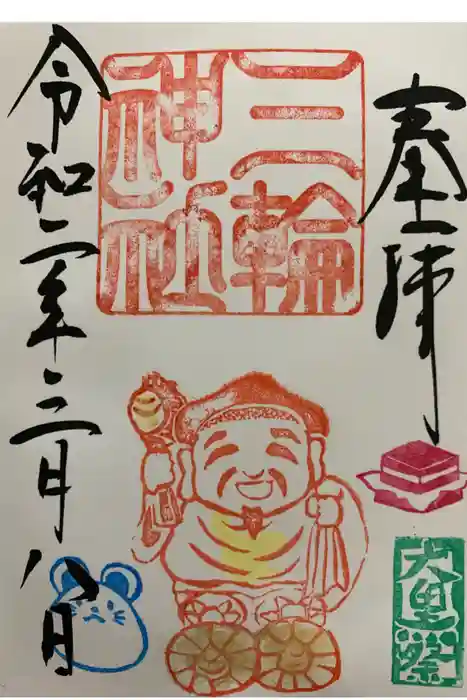 奉拝
三輪
神社
大黒祭
令和二年三月八日